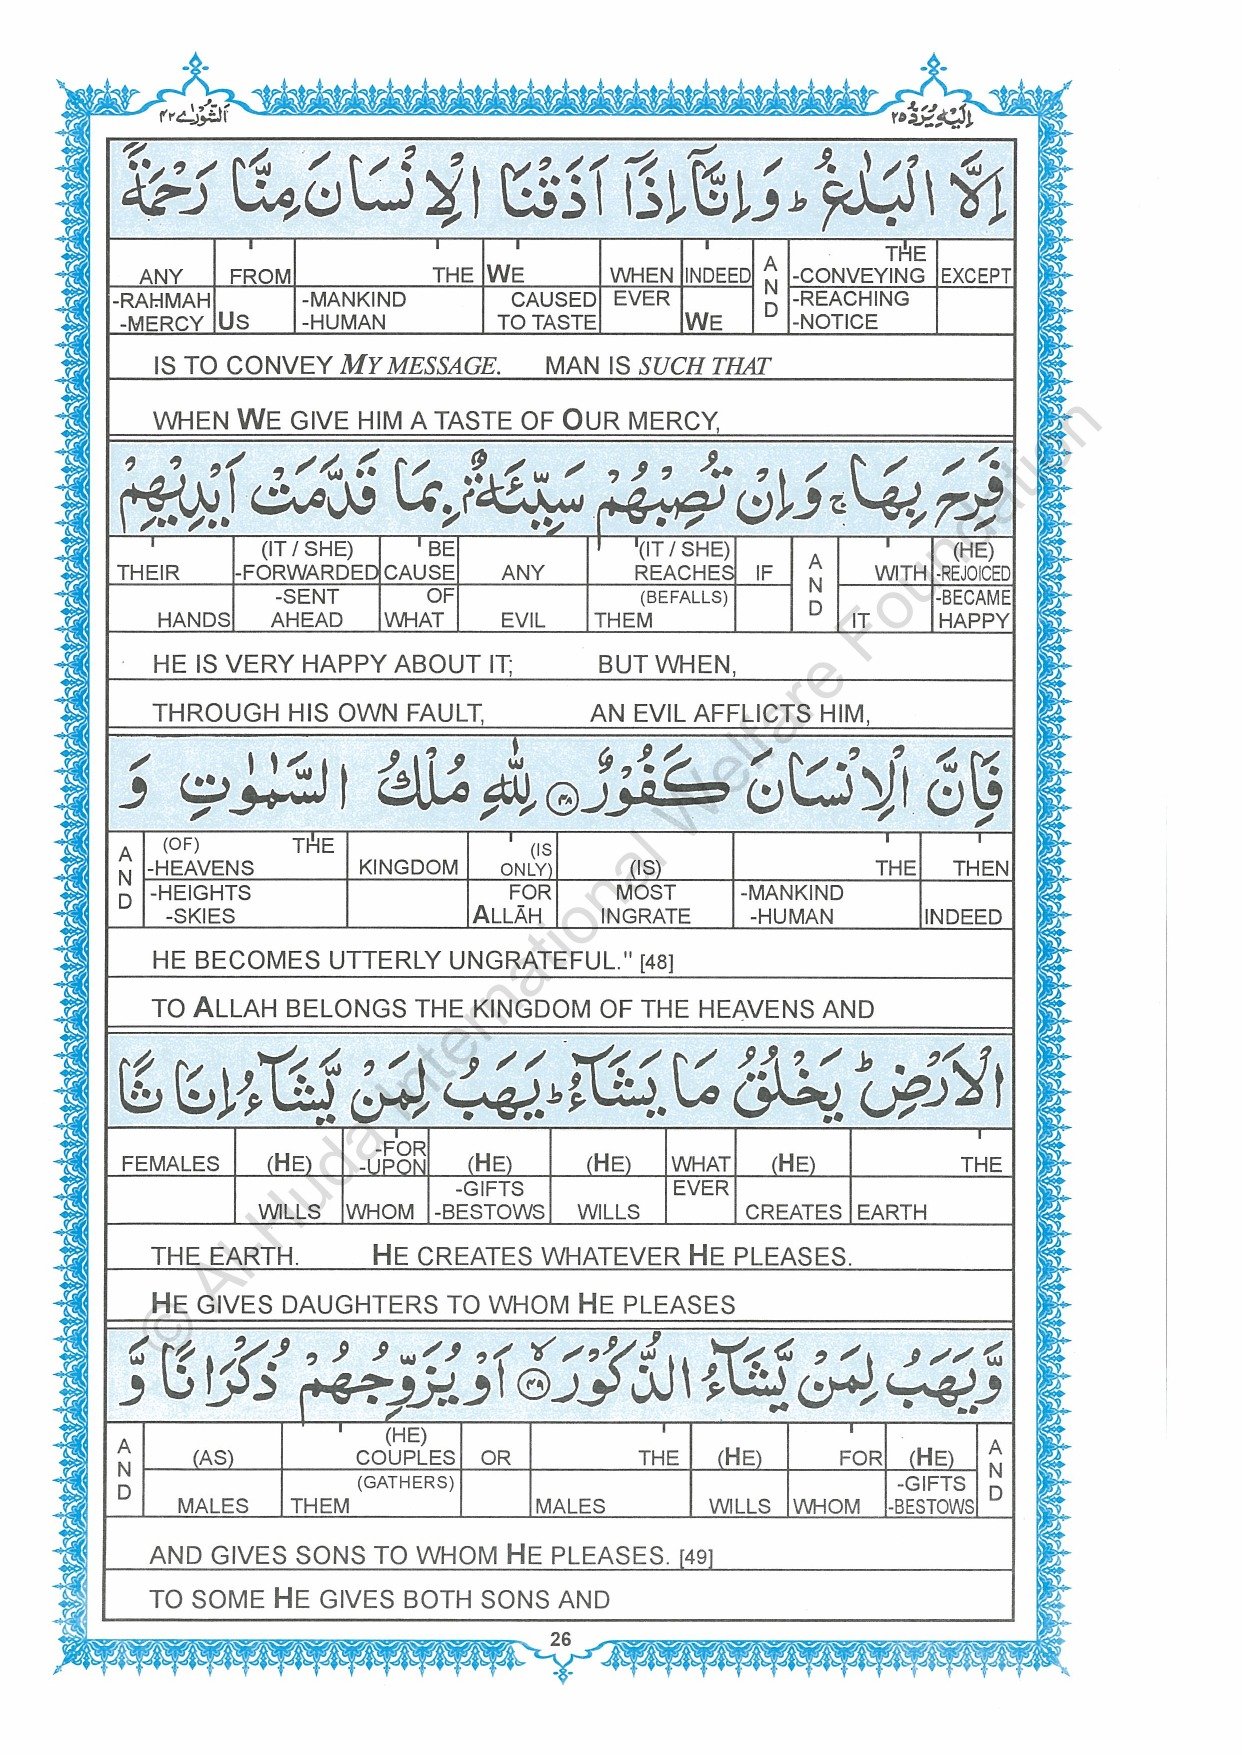 الشورٰى ٤٢
اليه يرد ٢٥
اِلَّا الْبَلٰغُ ؕ وَ اِنَّاۤ اِذَاۤ اَذَقْنَا الْاِنْسَانَ مِنَّا رَحْمَةً
ANY FROM THE WE WHEN INDEED AND THE -CONVEYING EXCEPT
-RAHMAH -MERCY US -MANKIND -HUMAN CAUSED TO TASTE EVER WE -REACHING -NOTICE
IS TO CONVEY MY MESSAGE. MAN IS SUCH THAT
WHEN WE GIVE HIM A TASTE OF OUR MERCY,
فَرِحَ بِهَا ۚ وَ اِنْ تُصِبْهُمْ سَيِّئَةٌۢ بِمَا قَدَّمَتْ اَيْدِيْهِمْ
THEIR (IT / SHE) -FORWARDED BE CAUSE ANY (IT / SHE) REACHES IF AND WITH (HE) -REJOICED
HANDS -SENT AHEAD OF WHAT EVIL (BEFALLS) THEM IT -BECAME HAPPY
HE IS VERY HAPPY ABOUT IT; BUT WHEN,
THROUGH HIS OWN FAULT, AN EVIL AFFLICTS HIM,
فَاِنَّ الْاِنْسَانَ كَفُوْرٌ ٤٨ لِلّٰهِ مُلْكُ السَّمٰوٰتِ وَ
AND (OF) THE -HEAVENS KINGDOM (IS ONLY) (IS) THE THEN
-HEIGHTS -SKIES FOR ALLĀH MOST INGRATE -MANKIND -HUMAN INDEED
HE BECOMES UTTERLY UNGRATEFUL." [48]
TO ALLAH BELONGS THE KINGDOM OF THE HEAVENS AND
الْاَرْضِ ؕ يَخْلُقُ مَا يَشَآءُ ؕ يَهَبُ لِمَنْ يَّشَآءُ اِنَاثًا
FEMALES (HE) -FOR -UPON (HE) (HE) WHAT (HE) THE
WILLS WHOM -GIFTS -BESTOWS WILLS EVER CREATES EARTH
THE EARTH. HE CREATES WHATEVER HE PLEASES.
HE GIVES DAUGHTERS TO WHOM HE PLEASES
وَّ يَهَبُ لِمَنْ يَّشَآءُ الذُّكُوْرَ ۙ ٤٩ اَوْ يُزَوِّجُهُمْ ذُكْرَانًا وَّ
AND (AS) (HE) COUPLES OR THE (HE) FOR (HE) AND
MALES (GATHERS) THEM MALES WILLS WHOM -GIFTS -BESTOWS
AND GIVES SONS TO WHOM HE PLEASES. [49]
TO SOME HE GIVES BOTH SONS AND
26
© Al-Huda International Welfare Foundation